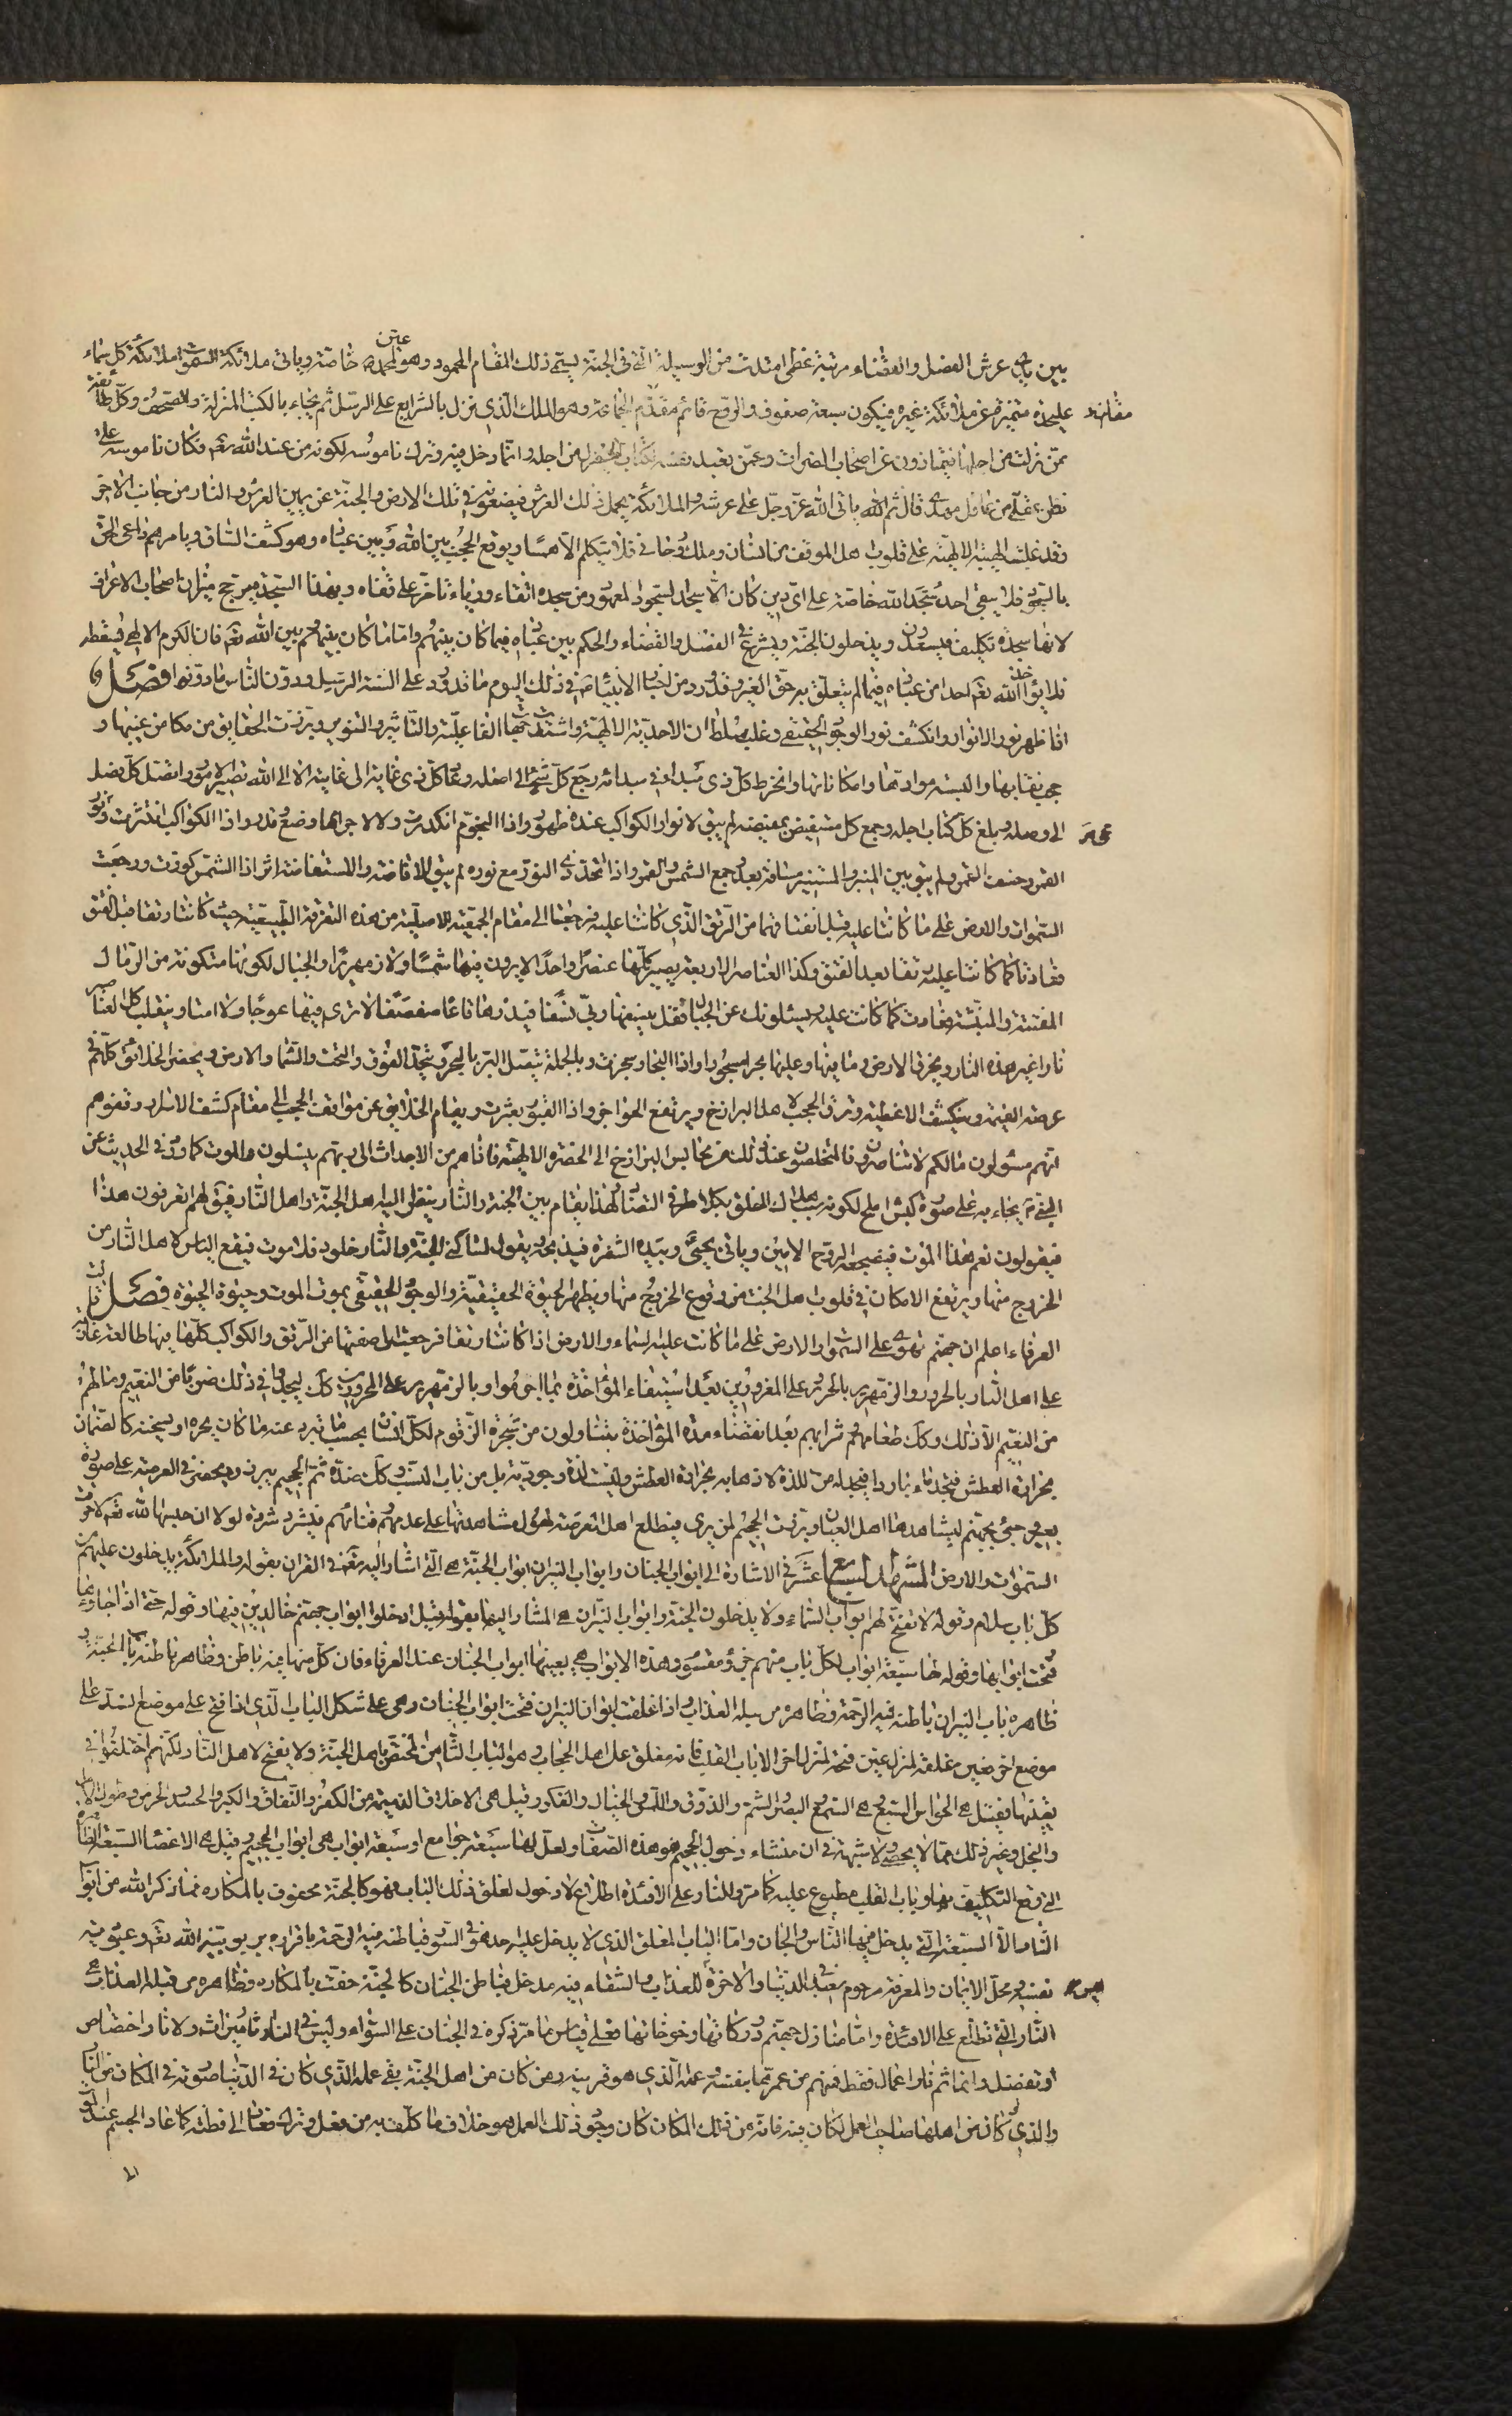 بين يدي عرش الفصل والقضاء مرتبة عظمى امتدت من الوسيلة التي في الجنة يسمى ذلك المقام المحمود وهو لمحمد ص خاصة وياتى ملائكة السموات ملائكة كل سماء
على حدة متميزة عن ملائكة غيره فيكون سبعة صفوف والروح قائم مقدم الجماعة وهو الملك الذي نزل بالشرايع على الرسل ثم يجاء بالكتب المنزلة والصحف وكل طائفة
ممن نزلت من اجلها فيمتازون عن اصحاب الفترات وعمن تعبد نفسه بكتاب لم ينزل من اجله وانما دخل فيه وترك ناموسه لكونه من عند الله تعم وكان ناموسه على
نظر عقلى من عاقل مهدى قال ثم الله ياتى الله عز وجل على عرشه والملائكة يحمل ذلك العرش فيضعونه في تلك الارض والجنة عن يمين العرش والنار من جانب الاخر
وقد غلبت الهيبة الالهية على قلوب اهل الموقف من انسان وملك وجان فلا يتكلم الا همسا ويرفع الحجب بين الله وبين عباده وهو كشف الساق ويامرهم داعى الحق
بالسجود فلا يبقى احد سجد لله خاصة على اى دين كان الا سجد السجود المعهود ومن سجد اتقاء ورياء خر على قفاه وبهذا السجدة يرجح ميزان اصحاب الاعراف
لانها سجدة تكليف فيسعدون ويدخلون الجنة ويشرع في الفصل والقضاء والحكم بين عباده فيما كان بينهم واما ما كان بينهم وبين الله تعم فان الكرم الالهى قد اسقطه
فلا يؤاخذ الله تعم احدا من عباده فيما لم يتعلق به حق الغير وقد ورد من اخبار الانبياء ص في ذلك اليوم ما قد ورد على السنة الرسل ودون الناس ما دونوا فصل
اذا ظهر نور الانوار وانكشف نور الوجود الحقيقى وغلب سلطان الاحدية الالهية واشتدت جهات الفاعلية والتاثير والتنوير وبرزت الحقايق من مكامن غيبها و
حجب نقابها والبسه موادتها وامكاناتها وانخرط كل ذى مبدا في مبدائه رجع كل شئ الى اصله وعاد كل ذى غاية الى غايته الا الى الله تصير الامور واتصل كل فصل
الى وصله وبلغ كل كتاب اجله وجمع كل مستفيض بمفيضه لم يبق لانوار الكواكب عنده ظهور واذا النجوم انكدرت ولا لاجرامها وضع وقدر واذا الكواكب انتثرت ونور
القمر وخسف القمر ولم يبق بين المنير والمستنير مسافة بعد وجمع الشمس والقمر واذا اتحد ذى النور مع نوره لم يبق للافاضة والاستفاضة اثر اذا الشمس كورت ورجعت
السموات والارض على ما كانتا عليه قبل انفتاقهما من الرتق الذي كانتا عليه فرجعتا الى مقام الجمعية الاصلية من هذه التفرقة الطبيعية حيث كانتا رتقا قبل الفتق
فعادتا كما كانتا عليه رتقا بعد الفتق وكذا العناصر الاربعة يصير كلها عنصرا واحدا لا يرون فيها شمسا ولا زمهريرا والجبال لكونها متكونة من الرمال
المفتتة والمنبثة فعادت كما كانت عليه ويسئلونك عن الجبال فقل ينسفها ربى نسفا فيذرها قاعا صفصفا لا ترى فيها عوجا ولا امتا وينقلب كل العناصر
نارا غير هذه النار ويحرق الارض وما فيها وعليها بحرا مسجورا واذا البحار سجرت وبالجملة يتصل البر بالبحر ويتحد الفوق والتحت والسماء والارض ويحضر الخلائق كلهم في
عرصة القيمة وينكشف الاغطية ويرفع الحجب لاهل البرازخ ويرتفع الحواجز واذا القبور بعثرت ويقام الخلايق عن مواقف الحجب الى مقام كشف الاسرار وقفوهم
انهم مسئولون مالكم لا تناصرون فالمتخلصون عند ذلك من محابس البرازخ الى الحضرة الالهية فاذا هم من الاجداث الى ربهم ينسلون والموت كما ورد في الحديث عن
النبي ص يجاء به على صورة كبش املح لكونه سبب هلاك الخلق بكلا طرفى التضاد لهذا يقام بين الجنة والنار ينظر اليه اهل الجنة واهل النار فيقول لهم اتعرفون هذا
فيقولون نعم هذا الموت فيضجعه الروح الامين وياتى يحيى وبيده الشفرة فيذبحه ويقول لساكنى الجنة والنار خلود فلا موت فيقع الياس لاهل النار من
الخروج منها ويرتفع الامكان في قلوب اهل الجنة من وقوع الخروج منها ويظهر الحيوة الحقيقية والوجود الحقيقى بموت الموت وحيوة الحيوة فصل قال
العرفاء اعلم ان جهنم تحوى على السموات والارض على ما كانت عليه السماء والارض اذا كانتا رتقا فرجعت الى صفتها من الرتق والكواكب كلها فيها طالعة غاربة
على اهل النار بالحرور والزمهرير بالحرور على المقرورين بعد استيفاء المؤاخذة بما اجرموا وبالزمهرير على المحرورين كل ليجدوا في ذلك ضربا من النعيم وما لهم
من النعيم الا ذلك وكل طعامهم وشرابهم بعد انقضاء مدة المؤاخذة يتناولون من شجرة الزقوم لكل انسان بحسب ما يبرد عنه ما كان يحره او يسخنه كالظمان
بحرارة العطش فيجد ماء باردا فيجد له من اللذة لاذهابه بحرارة العطش وليست لذة وجودية بل من باب السلب وكل ضده ثم الجحيم يبرز ويحضر في العرصة على صورة
بعير وجئ بجهنم ليشاهدها اهل العيان وبرزت الجحيم لمن يرى فيطلع اهل العرصة لهول مشاهدتها على عدمهم وفنائهم فيشرد شردة لولا ان حبسها الله تعم لاحرقت
السموات والارض المشهد السابع عشر في الاشارة الى ابواب الجنان وابواب النيران ابواب الجنة هى التي اشار اليه تعم في القران بقوله والملائكة يدخلون عليهم من
كل باب سلام وقوله لا تفتح لهم ابواب السماء ولا يدخلون الجنة وابواب النيران هى المشار اليها بقوله قيل ادخلوا ابواب جهنم خالدين فيها وقوله حتى اذا جاؤها
فتحت ابوابها وقوله لها سبعة ابواب لكل باب منهم جزء مقسوم وهذه الابواب هى بعينها ابواب الجنان عند العرفاء فان كل منها فيه باطن وظاهر باطنه باب الجنة و
ظاهره باب النيران باطنه فيه الرحمة وظاهره من قبله العذاب واذا غلقت ابواب النيران فتحت ابواب الجنان وهى على شكل الباب الذي اذا فتح على موضع انسد على
موضع اخر فعين غلقه لمنزل عين فتحه لمنزل اخر الا باب القلب فانه مغلق على اهل الحجاب وهو الباب الثامن المختص باهل الجنة ولا يفتح لاهل النار لكنهم اختلفوا في
تعيينها فقيل هى الحواس السبع هى السمع والبصر والشم والذوق واللمس والخيال والفكر وقيل هى الاخلاق الذميمة من الكفر والنفاق والكبر والحسد والحرص وطول الامل
والبخل وغير ذلك مما لا يحصى ولا شبهة في ان منشاء دخول الجحيم هو هذه الصفات ولعل لها سبعة جوامع او سبعة ابواب هى ابواب الجحيم وقيل هى الاعضاء السبعة الظاهرة
التي وقع التكليف بها وباب القلب مطبوع عليه كما مر وللنار على الافئدة اطلاع لا دخول لغلق ذلك الباب فهو كالجنة محفوف بالمكاره فما ذكر الله من ابواب
النار الا السبعة التي يدخل فيها الناس والجان واما الباب المغلق الذي لا يدخل عليه احد هو في السور فباطنه فيه الرحمة باقراره بربوبية الله تعم وعبودية
نفسه وهو محل الايمان والمعرفة مرحوم سعيد في الدنيا والاخرة للعذاب والشقاء فيه مدخل فباطن الجنان كالجنة حفت بالمكاره وظاهره من قبله العذاب هى
النار التي تطلع على الافئدة واما منازل جهنم ودركاتها وخوخاتها فعلى قياس ما مر ذكره في الجنان على السواء وليس في النار نار ميراث ولا نار اختصاص
او تفضل وانما ثم نار اعمال فقط فمنهم من عمرها بنفسه وعمله الذي هو قرينه ومن كان من اهل الجنة بقى عمله الذي كان في الدنيا صورته في المكان من النار
والذي لو كان من اهلها صاحب العمل لكان فيه فانه من ذلك المكان كان وجود ذلك العمل وهو خلاف ما كلف به من فعل وترك فعاد الى وطنه كما عاد الجسم عند الموت